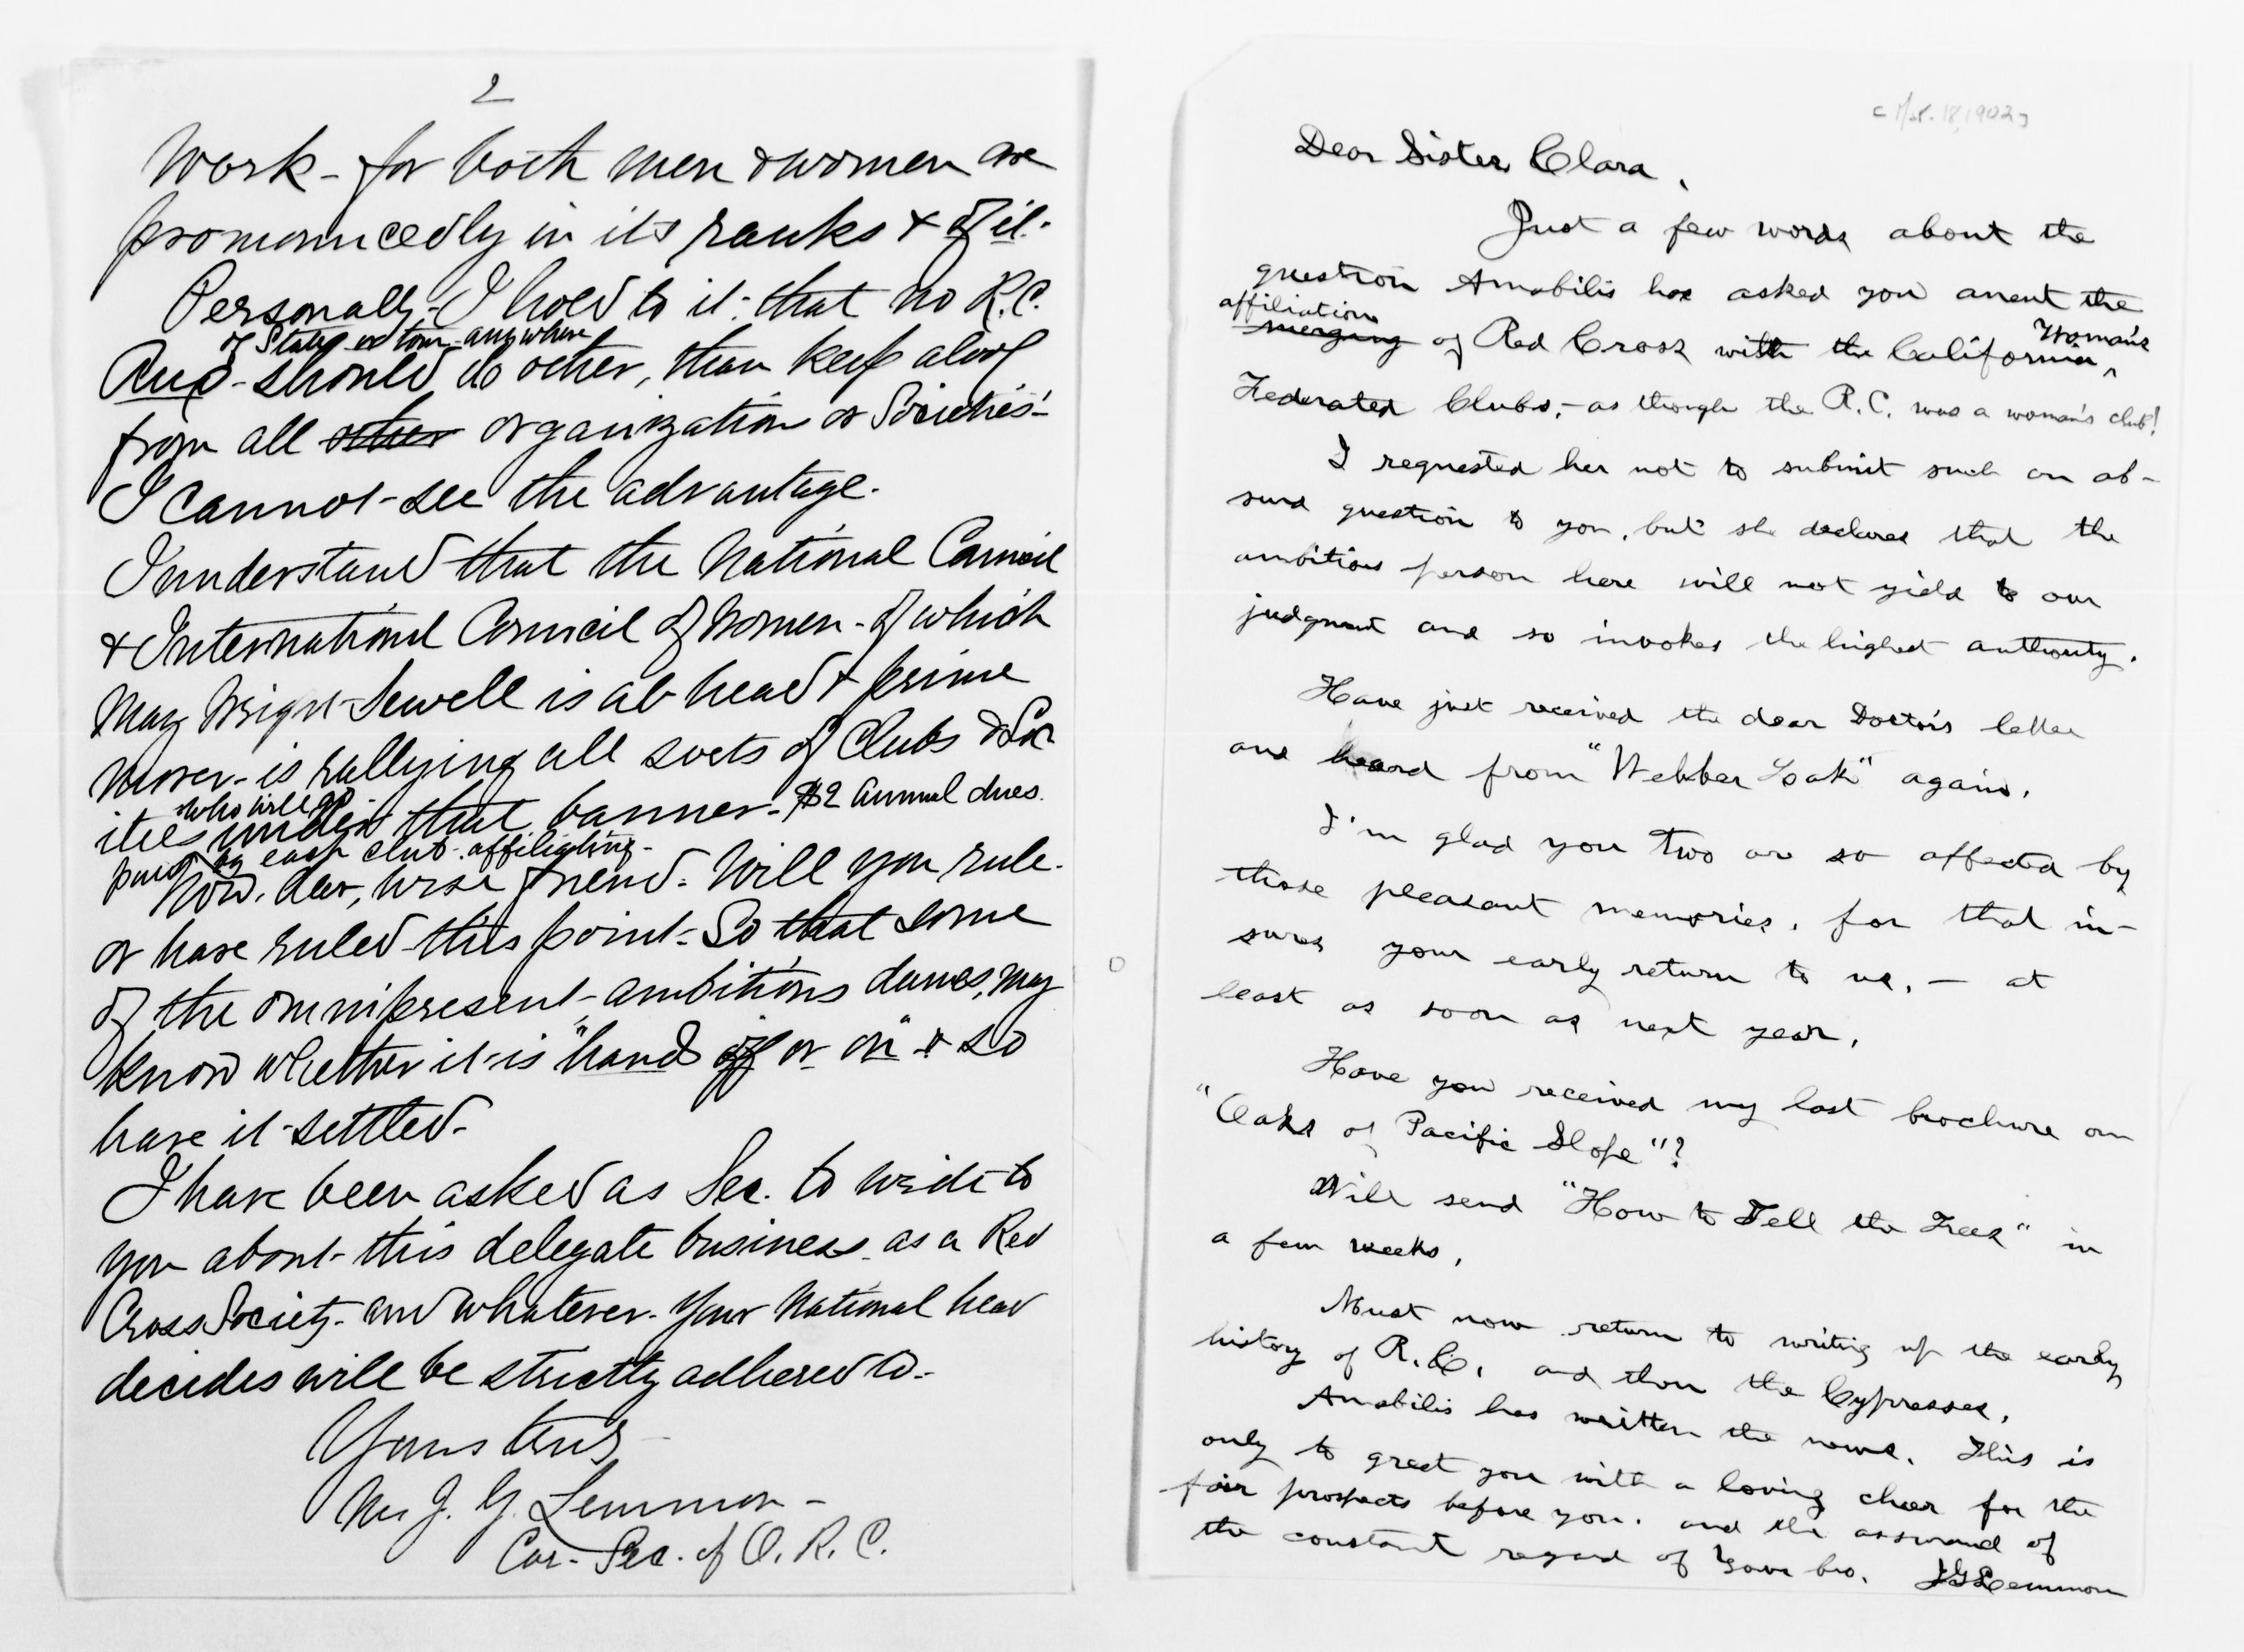 2
Work - for both men & women are
pronouncedly in its ranks & of it.
Personally - I hold to it: that no R.C.
of State or town - anywhere
Aux - should do other, than keep aloof
from all other organization or Societies -
I cannot see the advantage.
I understand that the National Council
& International Council of Women - of which
May Wright Sewell is at head & prime
mover - is rallying all sorts of Clubs & Soc
who will go
ities under that banner - $2 annual dues.
paid by each club affiliating -
Now, dear, wise friend - Will you rule -
or have ruled this point - So that some
of the omnipresent - ambitious dames, may
know whether it is "hands off or on" & so
have it settled -
I have been asked as Sec. to write to
you about this delegate business as a Red
Cross Society - and whatever - Your National head
decides will be strictly adhered to -
Yours truly -
Mrs J. G. Lemmon -
Cor - Sec. of O. R. C.
[Mar. 18, 1902]
Dear Sister Clara,
Just a few words about the
question Amabilis has asked you anent the
affiliation
merging of Red Cross with the California
Woman's
Federated Clubs, - as though the R.C. was a woman's club!
I requested her not to submit such an ab-
surd question to you, but she declares that the
ambitious person here will not yield to our
judgment and so invokes the highest authority.
Have just received the dear Doctor's letter
and heard from "Webber Oak" again.
I'm glad you two are so affected by
those pleasant memories, for that in-
sures your early return to us, - at
least as soon as next year.
Have you received my last brochure on
"Oaks of Pacific Slope"?
Will send "How to Tell the Trees" in
a few weeks.
Must now return to writing up the early
history of R.C. and then the Cypresses.
Amabilis has written the news. This is
only to greet you with a loving cheer for the
fair prospects before you, and the assurance of
the constant regard of Your bro. JG Lemmon